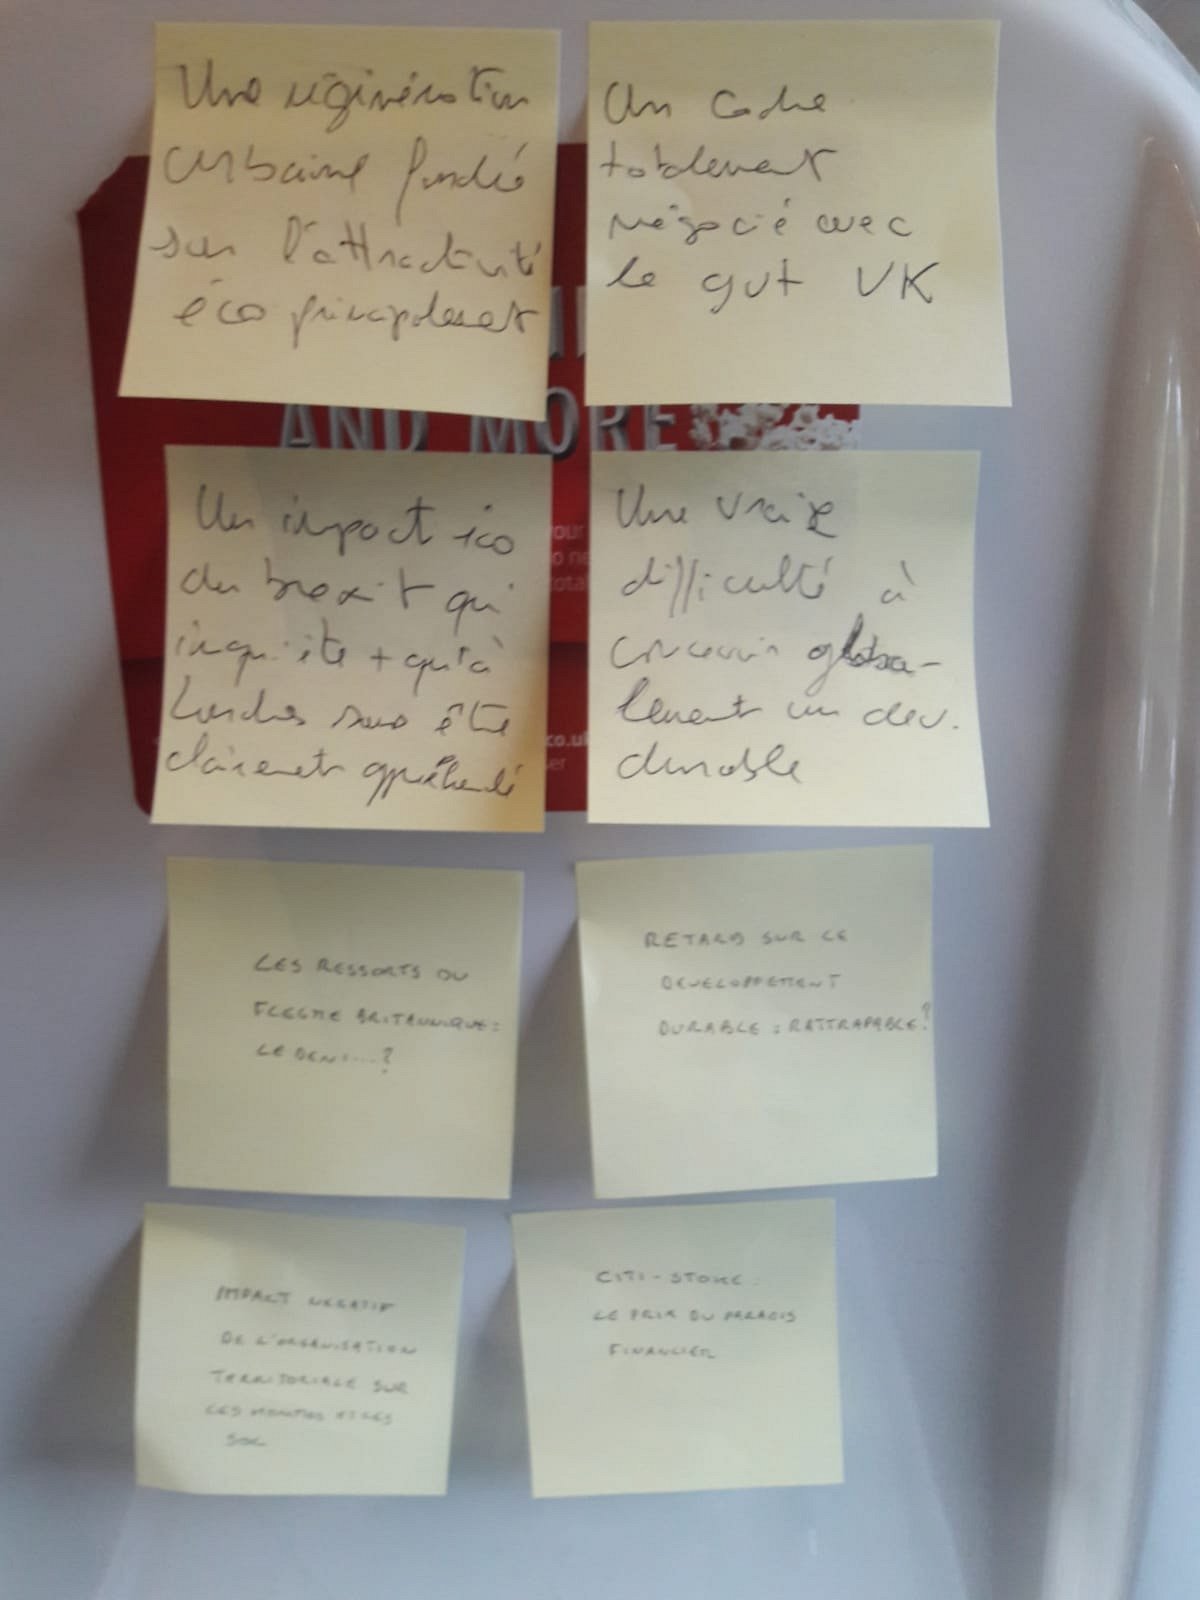 Une régénération
urbaine fondée
sur l'attractivité
éco principalement
Un cadre
totalement
négocié avec
le gvt UK
AND MORE
Un impact éco
du brexit qui
inquiète + qu'à
Londres sans être
clairement appréhendé
our
o ne
total
co.uk
ser
Une vraie
difficulté à
concevoir globa-
lement un dev.
durable
LES RESSORTS DU
FLEGME BRITANNIQUE :
LE DENI...?
RETARD SUR LE
DEVELOPPEMENT
DURABLE : RATTRAPABLE ?
IMPACT NEGATIF
DE L'ORGANISATION
TERRITORIALE SUR
LES ET LES
CITI-STOKE
LE PRIX DU PARADIS
FINANCIER